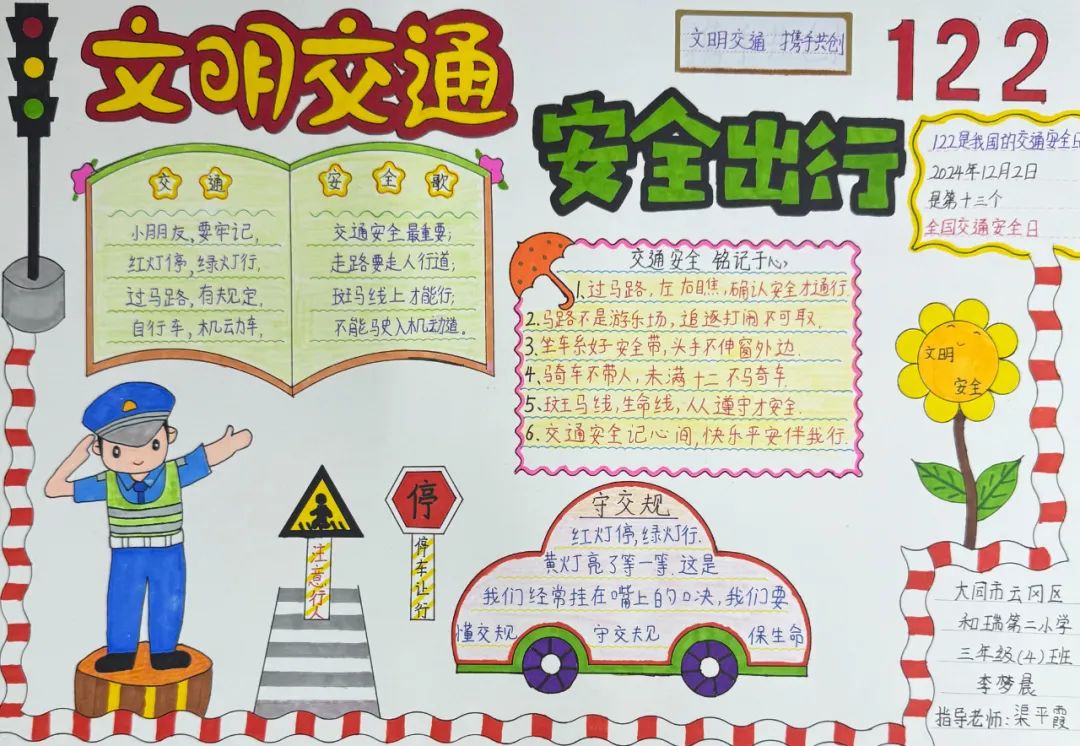 文明交通
文明交通 携手共创
122
安全出行
122是我国的交通安全日
2024年12月2日
是第十三个
全国交通安全日
交通
小朋友,要牢记,
红灯停,绿灯行,
过马路,有规定,
自行车,机动车,
安全歌
交通安全最重要;
走路要走人行道;
斑马线上才能行;
不能驶入机动道。
交通安全 铭记于心
1.过马路,左右瞧,确认安全才通行
2.马路不是游乐场,追逐打闹不可取.
3.坐车系好安全带,头手不伸窗外边.
4、骑车不带人,未满十二不骑车.
5、斑马线,生命线,人人遵守才安全.
6.交通安全记心间,快乐平安伴我行.
文明
安全
停
停车让行
注意行人
守交规
红灯停,绿灯行.
黄灯亮了等一等.这是
我们经常挂在嘴上的口决,我们要
懂交规 守交规 保生命
大同市云冈区
和瑞第二小学
三年级(4)班
李梦晨
指导老师:渠平霞